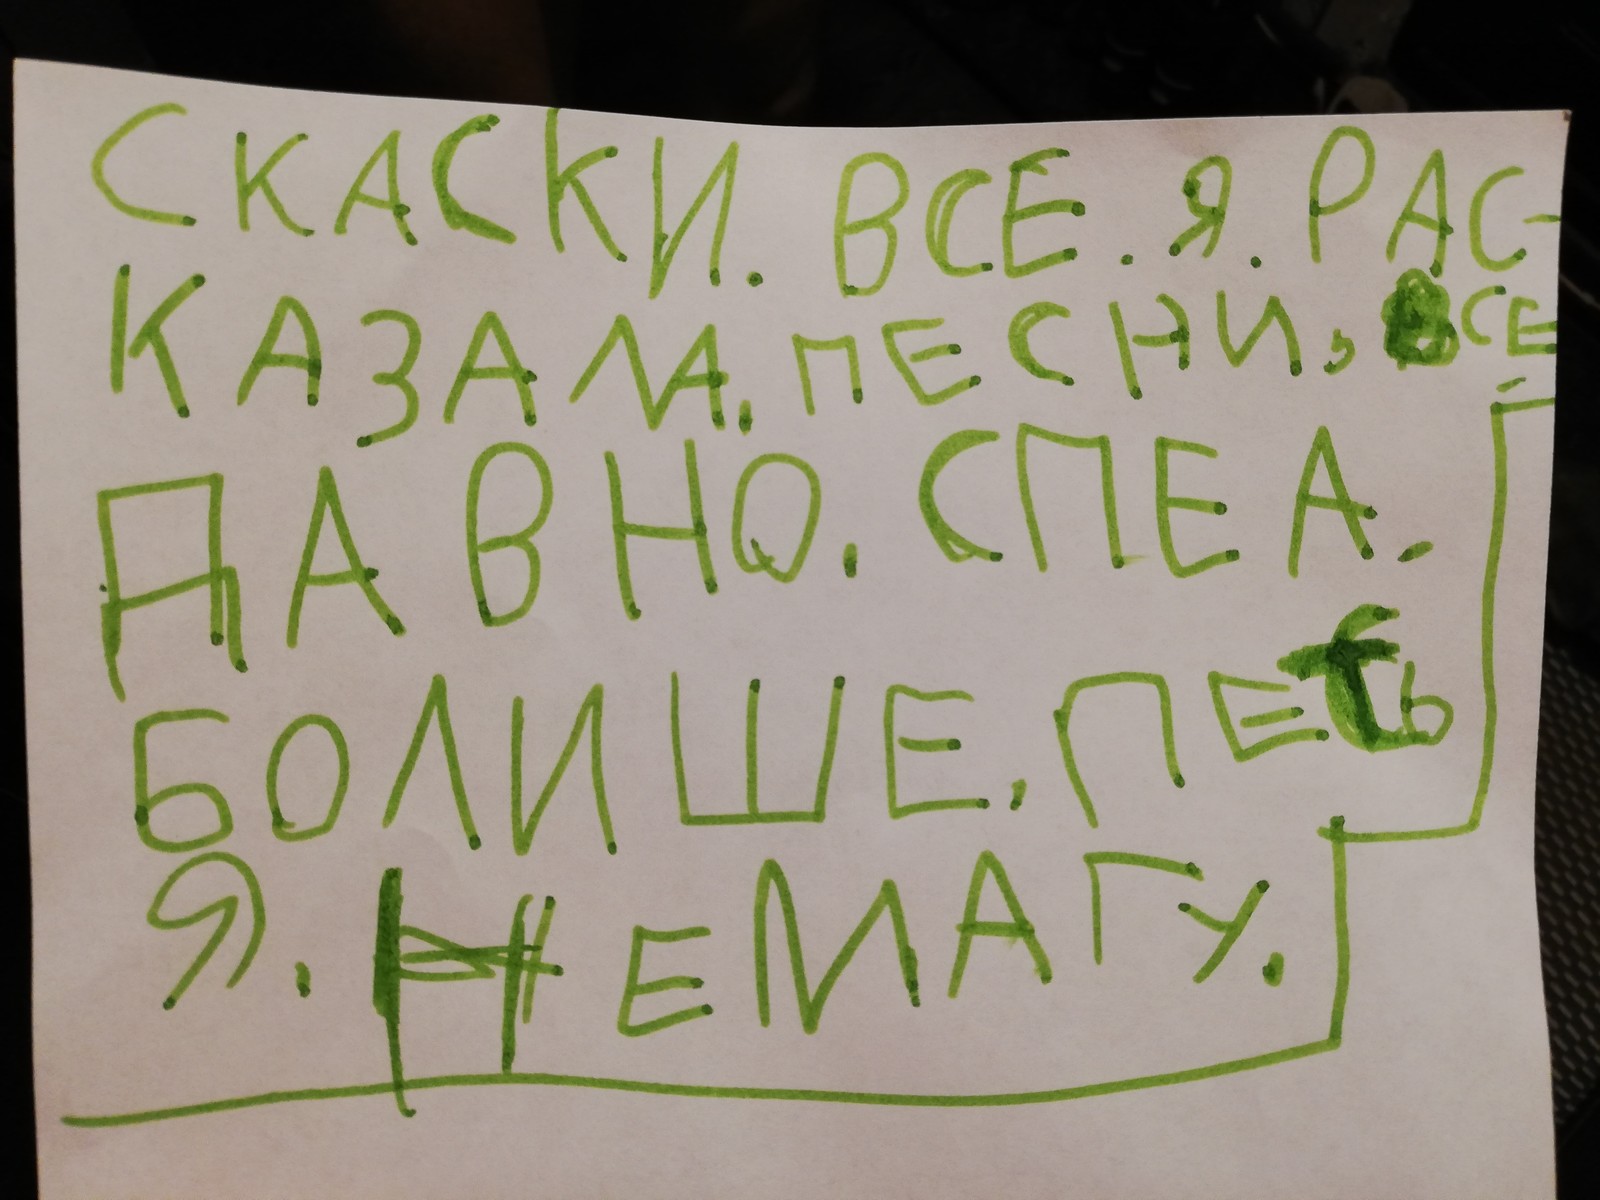 СКАСКИ. ВСЕ. Я. РАС-
КАЗАЛА. ПЕСНИ, ВСЕ
ДАВНО. СПЕЛА.
БОЛИШЕ. ПЕТЬ
Я. НЕМАГУ.